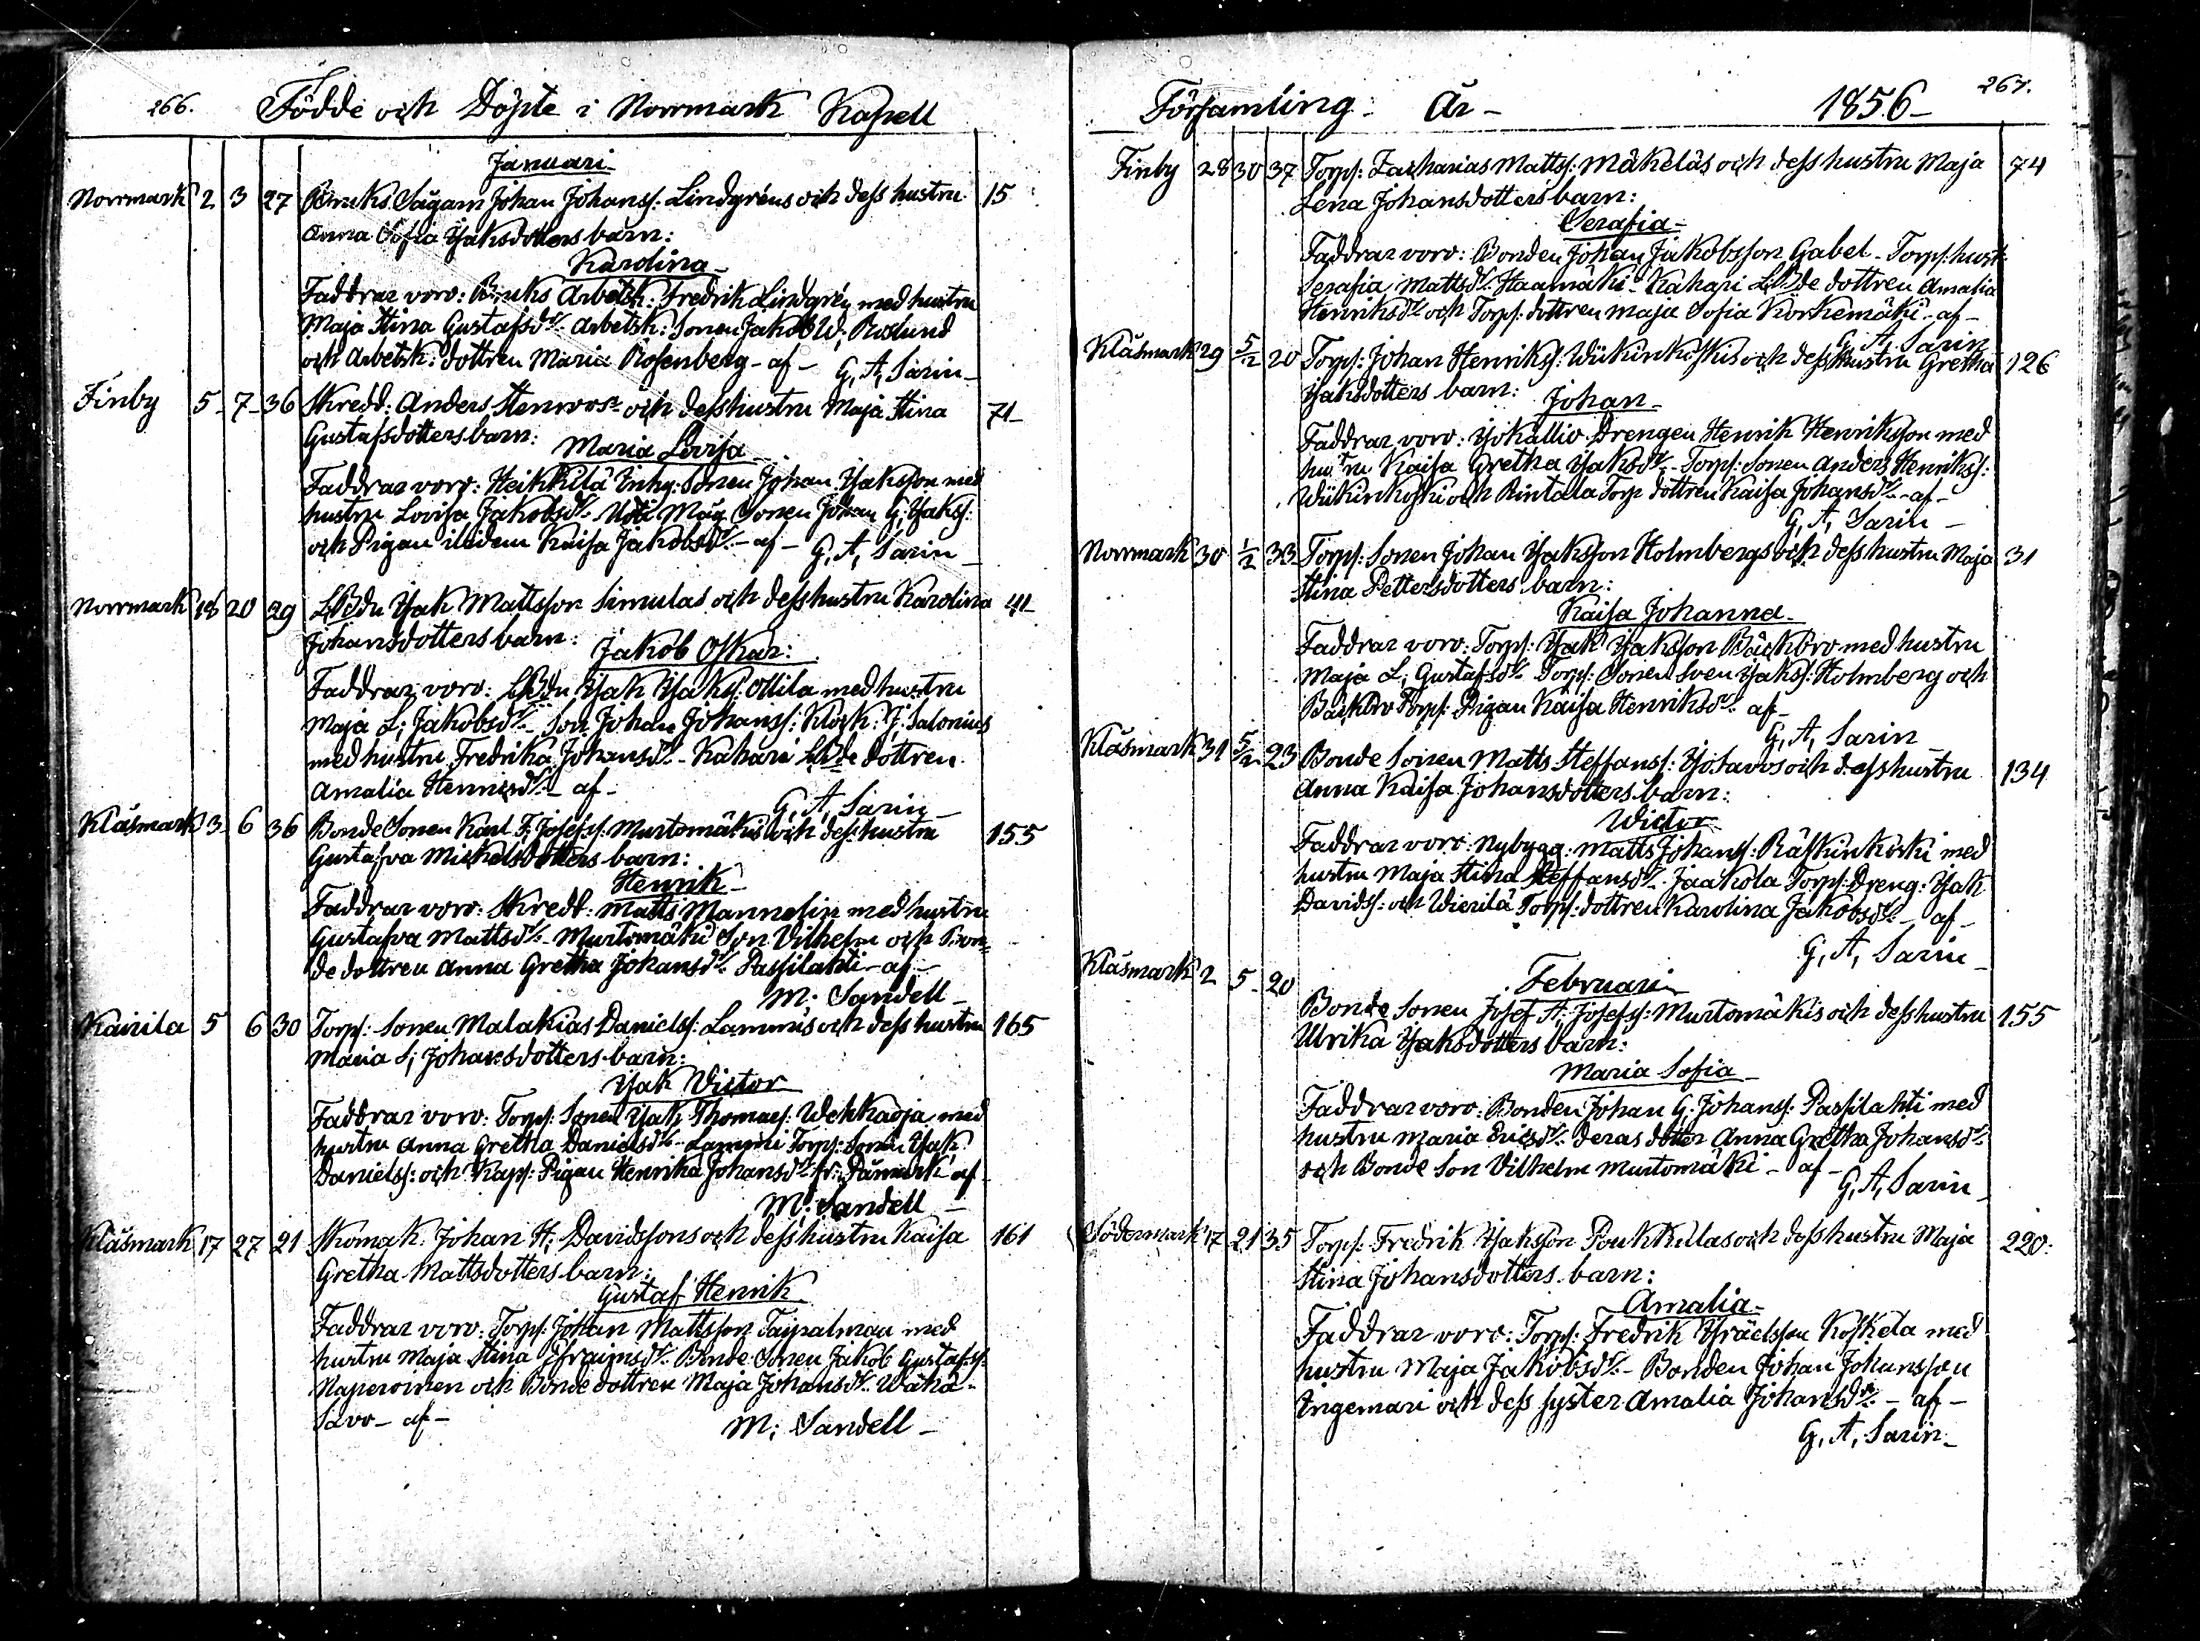 266. Födde och Döpte i Norrmark Kapell
Januari
Norrmark 2 3 27 Bruks Sågarn Johan Johanss: Lindgréns och dess hustru 15
Anna Sofia Isaksdotters barn:
Karolina
Faddrar voro: Bruks Arbetsk: Fredrik Lindgrén med hustru
Maja Stina Gustafsdr. Arbetsk: Sonen Jakob W. Roslund
och Arbetsk: dottren Maria Rosenberg - af - G, A, Sarin
Finby 5 7 36 Skredd: Anders Stenroos och dess hustru Maja Stina 71
Gustafsdotters barn:
Maria Lovisa
Faddrar voro: Heikkilä Inhy: Sonen Johan Isaksson med
hustru Lovisa Jakobsdr. Måg Sonen Johan G, Isakss:
och Pigan ibidem Kaisa Jakobsdr. - af - G, A, Sarin
Norrmark 18 20 29 LBdn Isak Mattsson Simulas och dess hustru Karolina 41
Johansdotters barn:
Jakob Oskar:
Faddrar voro: LBdn Isak Isakss: Ollila med hustru
Maja L, Jakobsdr. Son Johan Johanss: Klock: J, Salonius
med hustru Fredrika Johansdr. - Kahari LBde dottren
Amalia Henricsdr. - af -
G, A, Sarin
Klåsmark 3 6 36 Bonde Sonen Karl F, Josefss: Murtomäkis och dess hustru 155
Gustafva Mickelsdotters barn:
Henrik
Faddrar voro: Skredd: Matts Mannelin med hustru
Gustafva Mattsdr. Murtomäki Son Vilhelm och Bon=
de dottren Anna Gretha Johansdr. Passilahti - af -
M: Sandell
Kairila 5 6 30 Torp: Sonen Malakias Danielss: Lammis och dess hustru 165
Maria S, Johansdotters barn:
Isak Victor
Faddrar voro: Torp: Sonen Isak Thomass: Wehkaoja med
hustru Anna Gretha Danielsdr. Lammi Torp: Sonen Isak
Danielss: och Kaps: Pigan Henrika Johansdr. fr: Danmark af
M: Sandell
Klåsmark 17 27 21 Skomak. Johan H, Davidssons och dess hustru Kaisa 161
Gretha Mattsdotters barn:
Gustaf Henrik
Faddrar voro: Torp: Johan Mattsson Taipalmaa med
hustru Maja Stina Efraimsdr. Bonde Sonen Jakob Gustafss:
Naperoinen och Bonde dottren Maja Johansdr. Wähä-
Savo - af -
M: Sandell
Församling År 1856 267.
Finby 28 30 37 Torp: Zacharias Mattss: Mäkeläs och dess hustru Maja 74
Lena Johansdotters barn:
Serafia
Faddrar voro: Bonden Johan Jakobsson Gabel - Torp: hust:
Serafia Mattsdr. Haamäki - Kahari LBde dottren Amalia
Henriksdr. och Torp: dottren Maja Sofia Korkemäki - af -
G, A, Sarin
Klåsmark 29 5/2 20 Torp: Johan Henrikss: Wiikinkoskis och dess hustru Gretha 126
Isaksdotters barn:
Johan
Faddrar voro: Isokallio Drengen Henrik Henriksson med
hustru Kaisa Gretha Isaksdr. - Torp: Sonen Anders Henrikss:
Wiikinkoski och Rintala Torp dottren Kaisa Johansdr. - af -
G, A, Sarin
Norrmark 30 1/2 33 Torp: Sonen Johan Isaksson Holmbergs och dess hustru Maja 31
Stina Pettersdotters barn:
Kaisa Johanna
Faddrar voro: Torp: Isak Isaksson Bäckbro med hustru
Maja L, Gustafsdr. Torp: Sonen Sven Isakss: Holmberg och
Bäckbro Torp: Pigan Kaisa Henriksdr. af -
G, A, Sarin
Klåsmark 31 5/2 23 Bonde Sonen Matts Steffanss: Isosavos och dess hustru 134
Anna Kaisa Johansdotters barn:
Wictor
Faddrar voro: Nybygg: Matts Johanss: Räfkinkoski med
hustru Maja Stina Steffansdr. Jaakola Torp: Dreng: Isak
Davidss: och Wierilä Torp: dottren Karolina Jakobsdr. - af -
G, A, Sarin
Februari
Klåsmark 2 5 20 Bonde Sonen Josef A, Josefss: Murtomäkis och dess hustru 155
Ulrika Isaksdotters barn:
Maria Sofia
Faddrar voro: Bonden Johan G. Johanss: Passilahti med
hustru Maria Ericsdr. deras dotter Anna Gretha Johansdr.
och Bonde Son Vilhelm Murtomäki - af -
G, A, Sarin
Södermark 17 21 35 Torp: Fredrik Isaksson Poukkulas och dess hustru Maja 220:
Stina Johansdotters barn:
Amalia
Faddrar voro: Torp: Fredrik Israelsson Koskela med
hustru Maja Jakobsdr. - Bonden Johan Johansson
Ingemari och dess syster Amalia Johansdr. - af -
G, A, Sarin